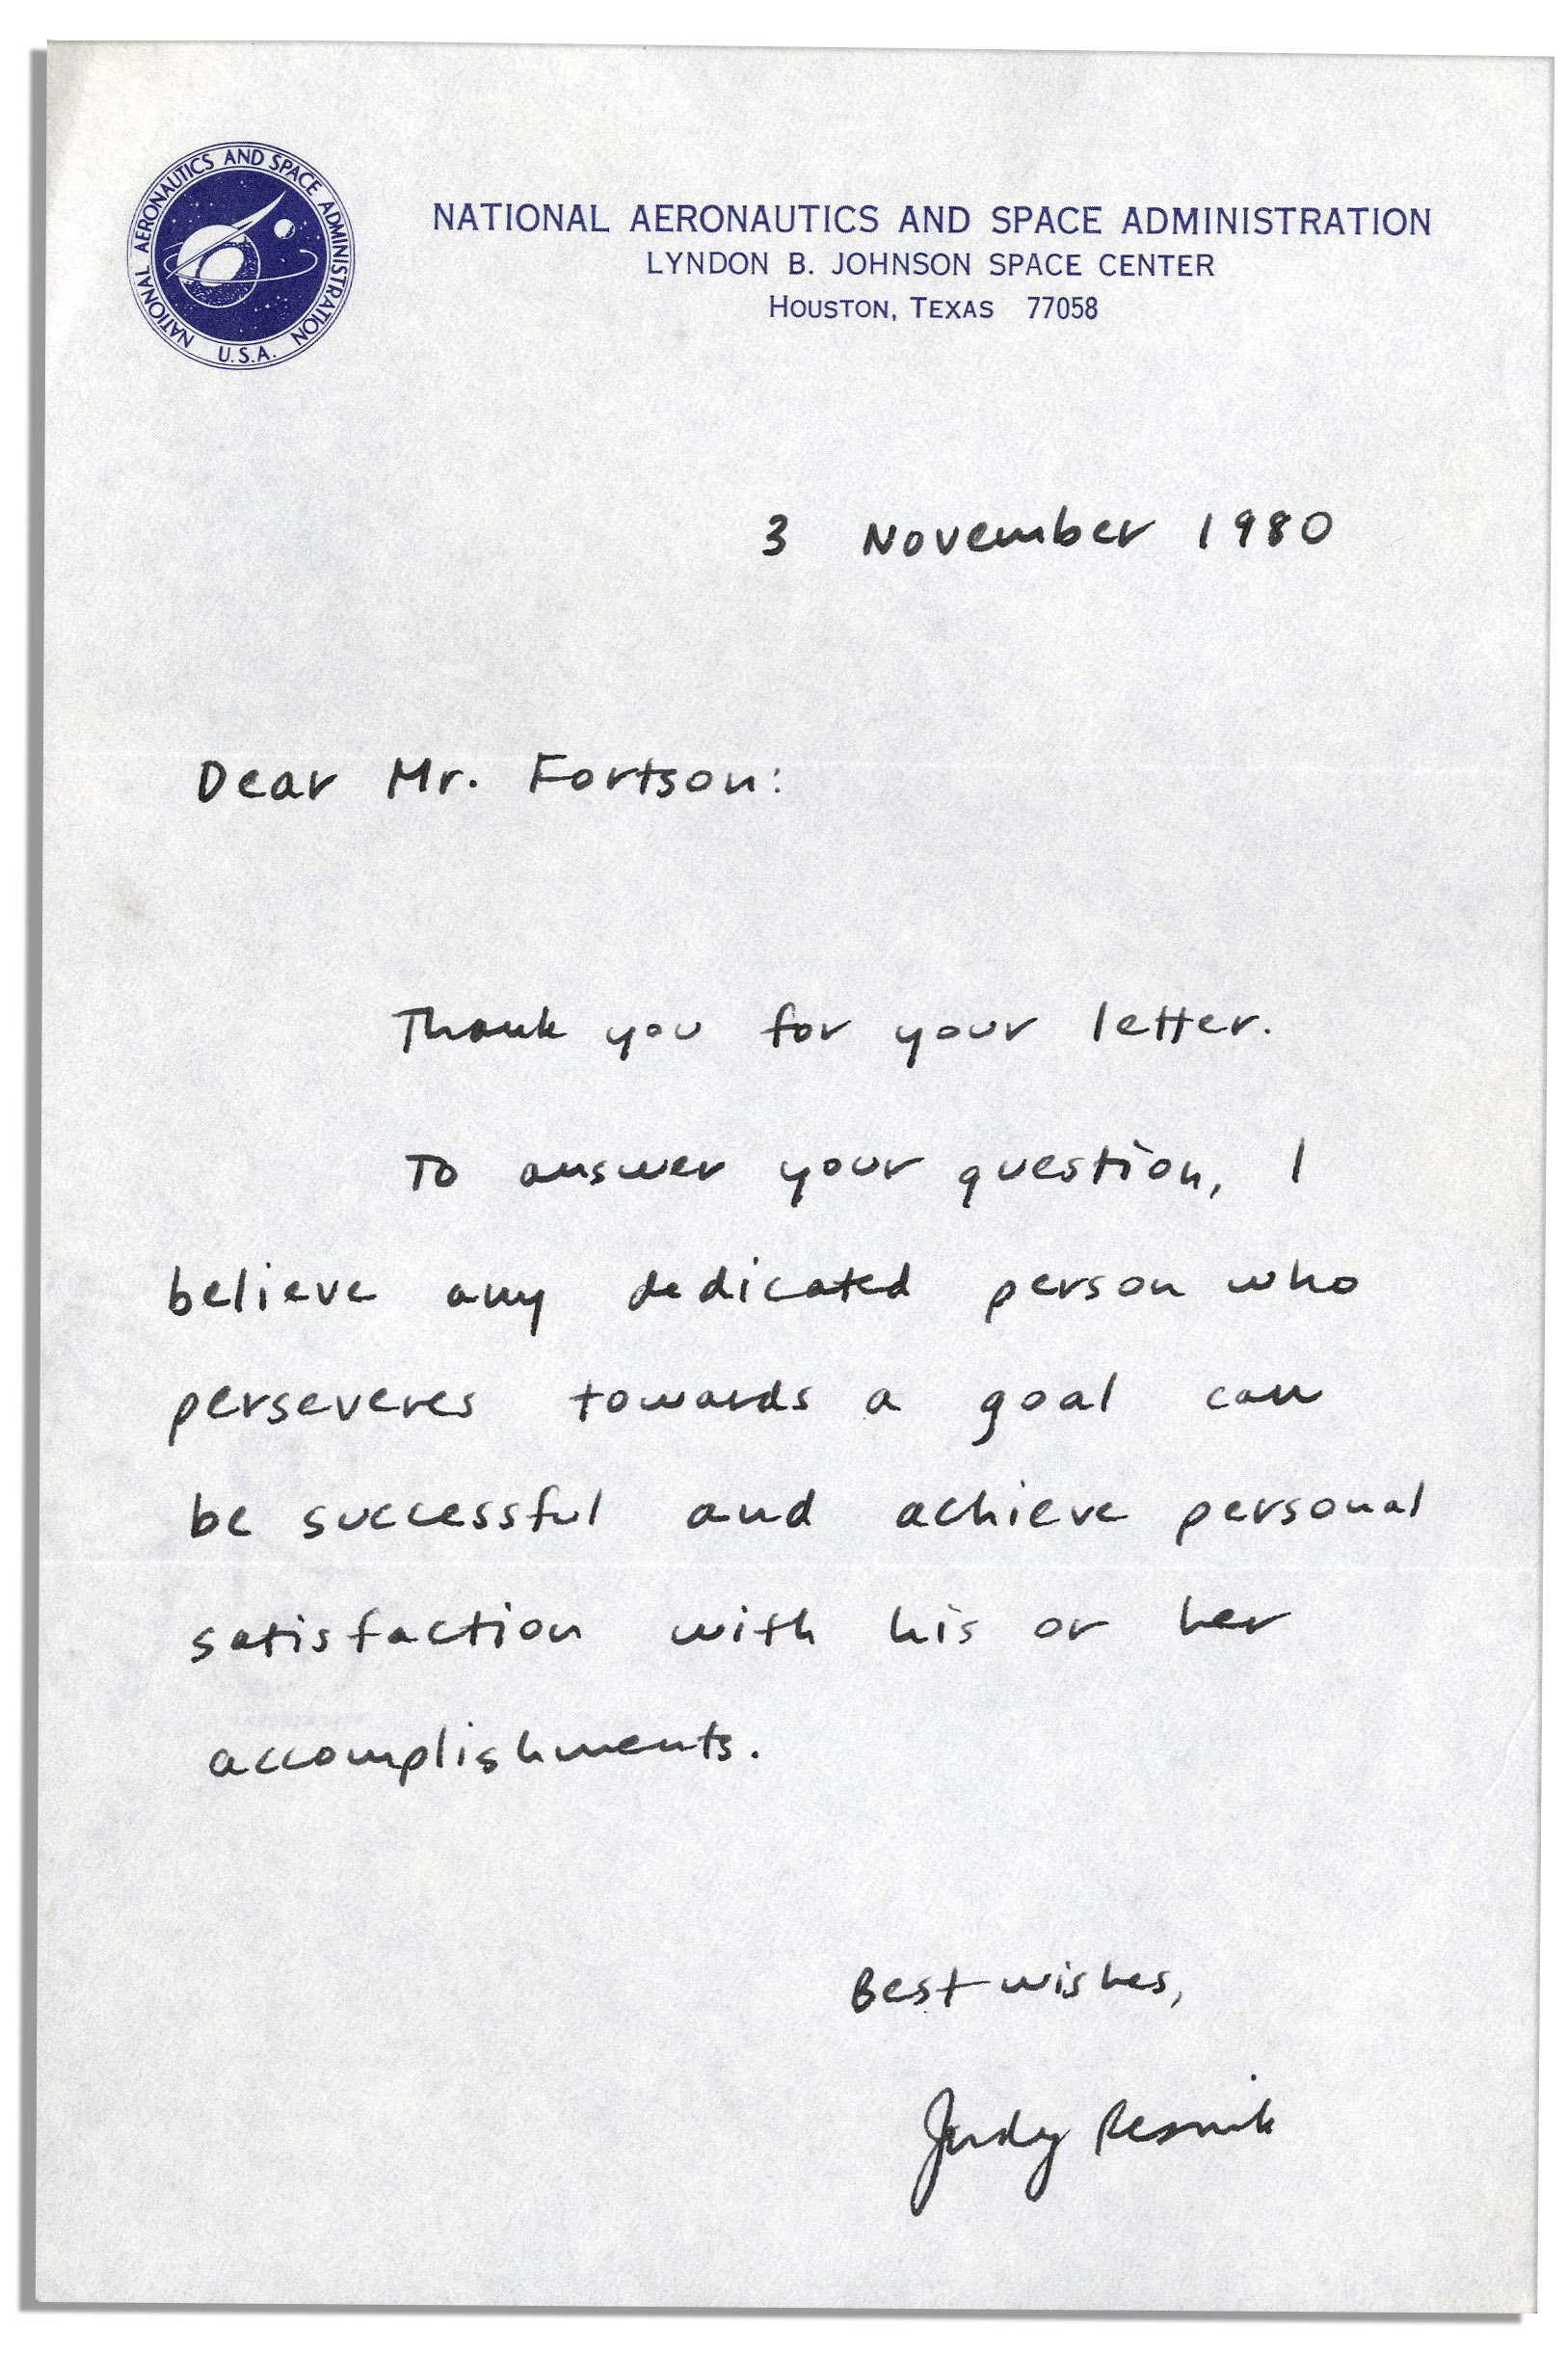 NATIONAL AERONAUTICS AND SPACE ADMINISTRATION
U.S.A.
NATIONAL AERONAUTICS AND SPACE ADMINISTRATION
LYNDON B. JOHNSON SPACE CENTER
HOUSTON, TEXAS 77058
3 November 1980
Dear Mr. Fortson:
Thank you for your letter.
To answer your question, I
believe any dedicated person who
perseveres towards a goal can
be successful and achieve personal
satisfaction with his or her
accomplishments.
Best wishes,
Judy Resnik